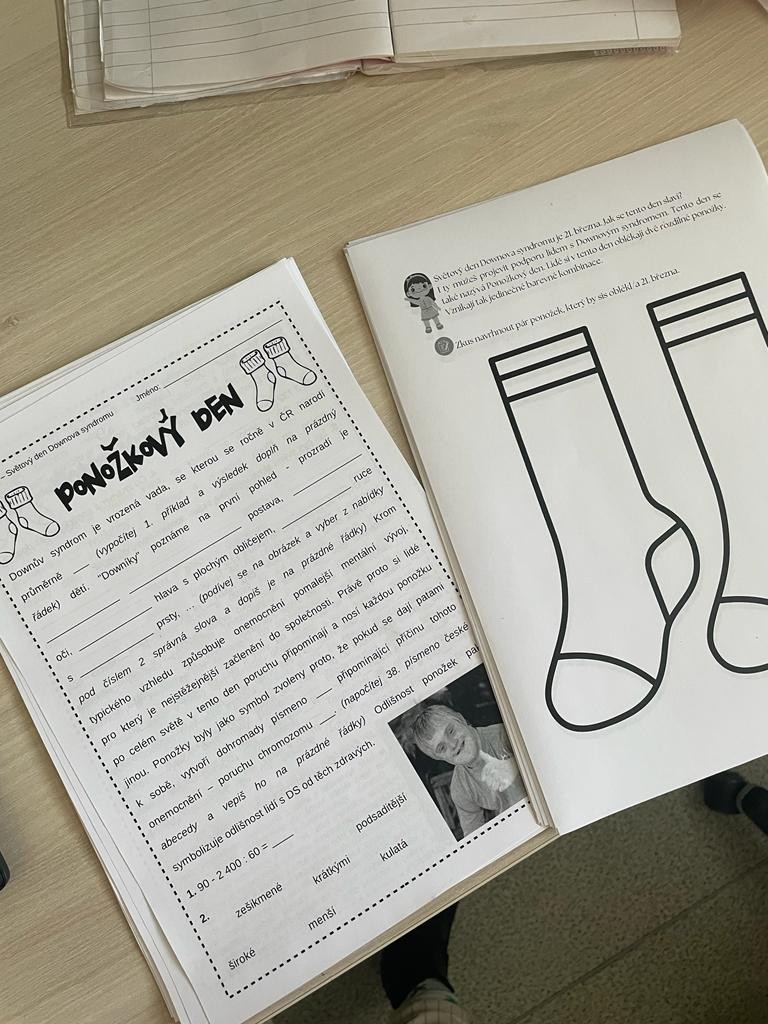 Světový den Downova syndromu
Jméno:
PONOŽKOVÝ DEN
Downův syndrom je vrozená vada, se kterou se ročně v ČR narodí
průměrně ___ (vypočítej 1. příklad a výsledek doplň na prázdný
řádek) dětí. "Downíky" poznáme na první pohled - prozradí je
___ postava, ___
___ hlava s plochým obličejem, ___ ruce
oči, ___
s ___ prsty, ... (podívej se na obrázek a vyber z nabídky
pod číslem 2 správná slova a dopiš je na prázdné řádky) Krom
typického vzhledu způsobuje onemocnění pomalejší mentální vývoj,
pro který je nejstěžejnější začlenění do společnosti. Právě proto si lidé
po celém světě v tento den poruchu připomínají a nosí každou ponožku
jinou. Ponožky byly jako symbol zvoleny proto, že pokud se dají patami
k sobě, vytvoří dohromady písmeno ___ připomínající příčinu tohoto
onemocnění – poruchu chromozomu ___. (napočítej 38. písmeno české
abecedy a vepiš ho na prázdné řádky) Odlišnost ponožek pak
symbolizuje odlišnost lidí s DS od těch zdravých.
1. 90 - 2 400 : 60 = ___
2. zešikmené krátkými podsaditější
široké menší kulatá
Světový den Downova syndromu je 21. března. Jak se tento den slaví?
I ty můžeš projevit podporu lidem s Downovým syndromem. Tento den se
také nazývá Ponožkový den. Lidé si v tento den oblékají dvě rozdílné ponožky.
Vznikají tak jedinečné barevné kombinace.
Zkus navrhnout pár ponožek, který by sis oblékl/a 21. března.